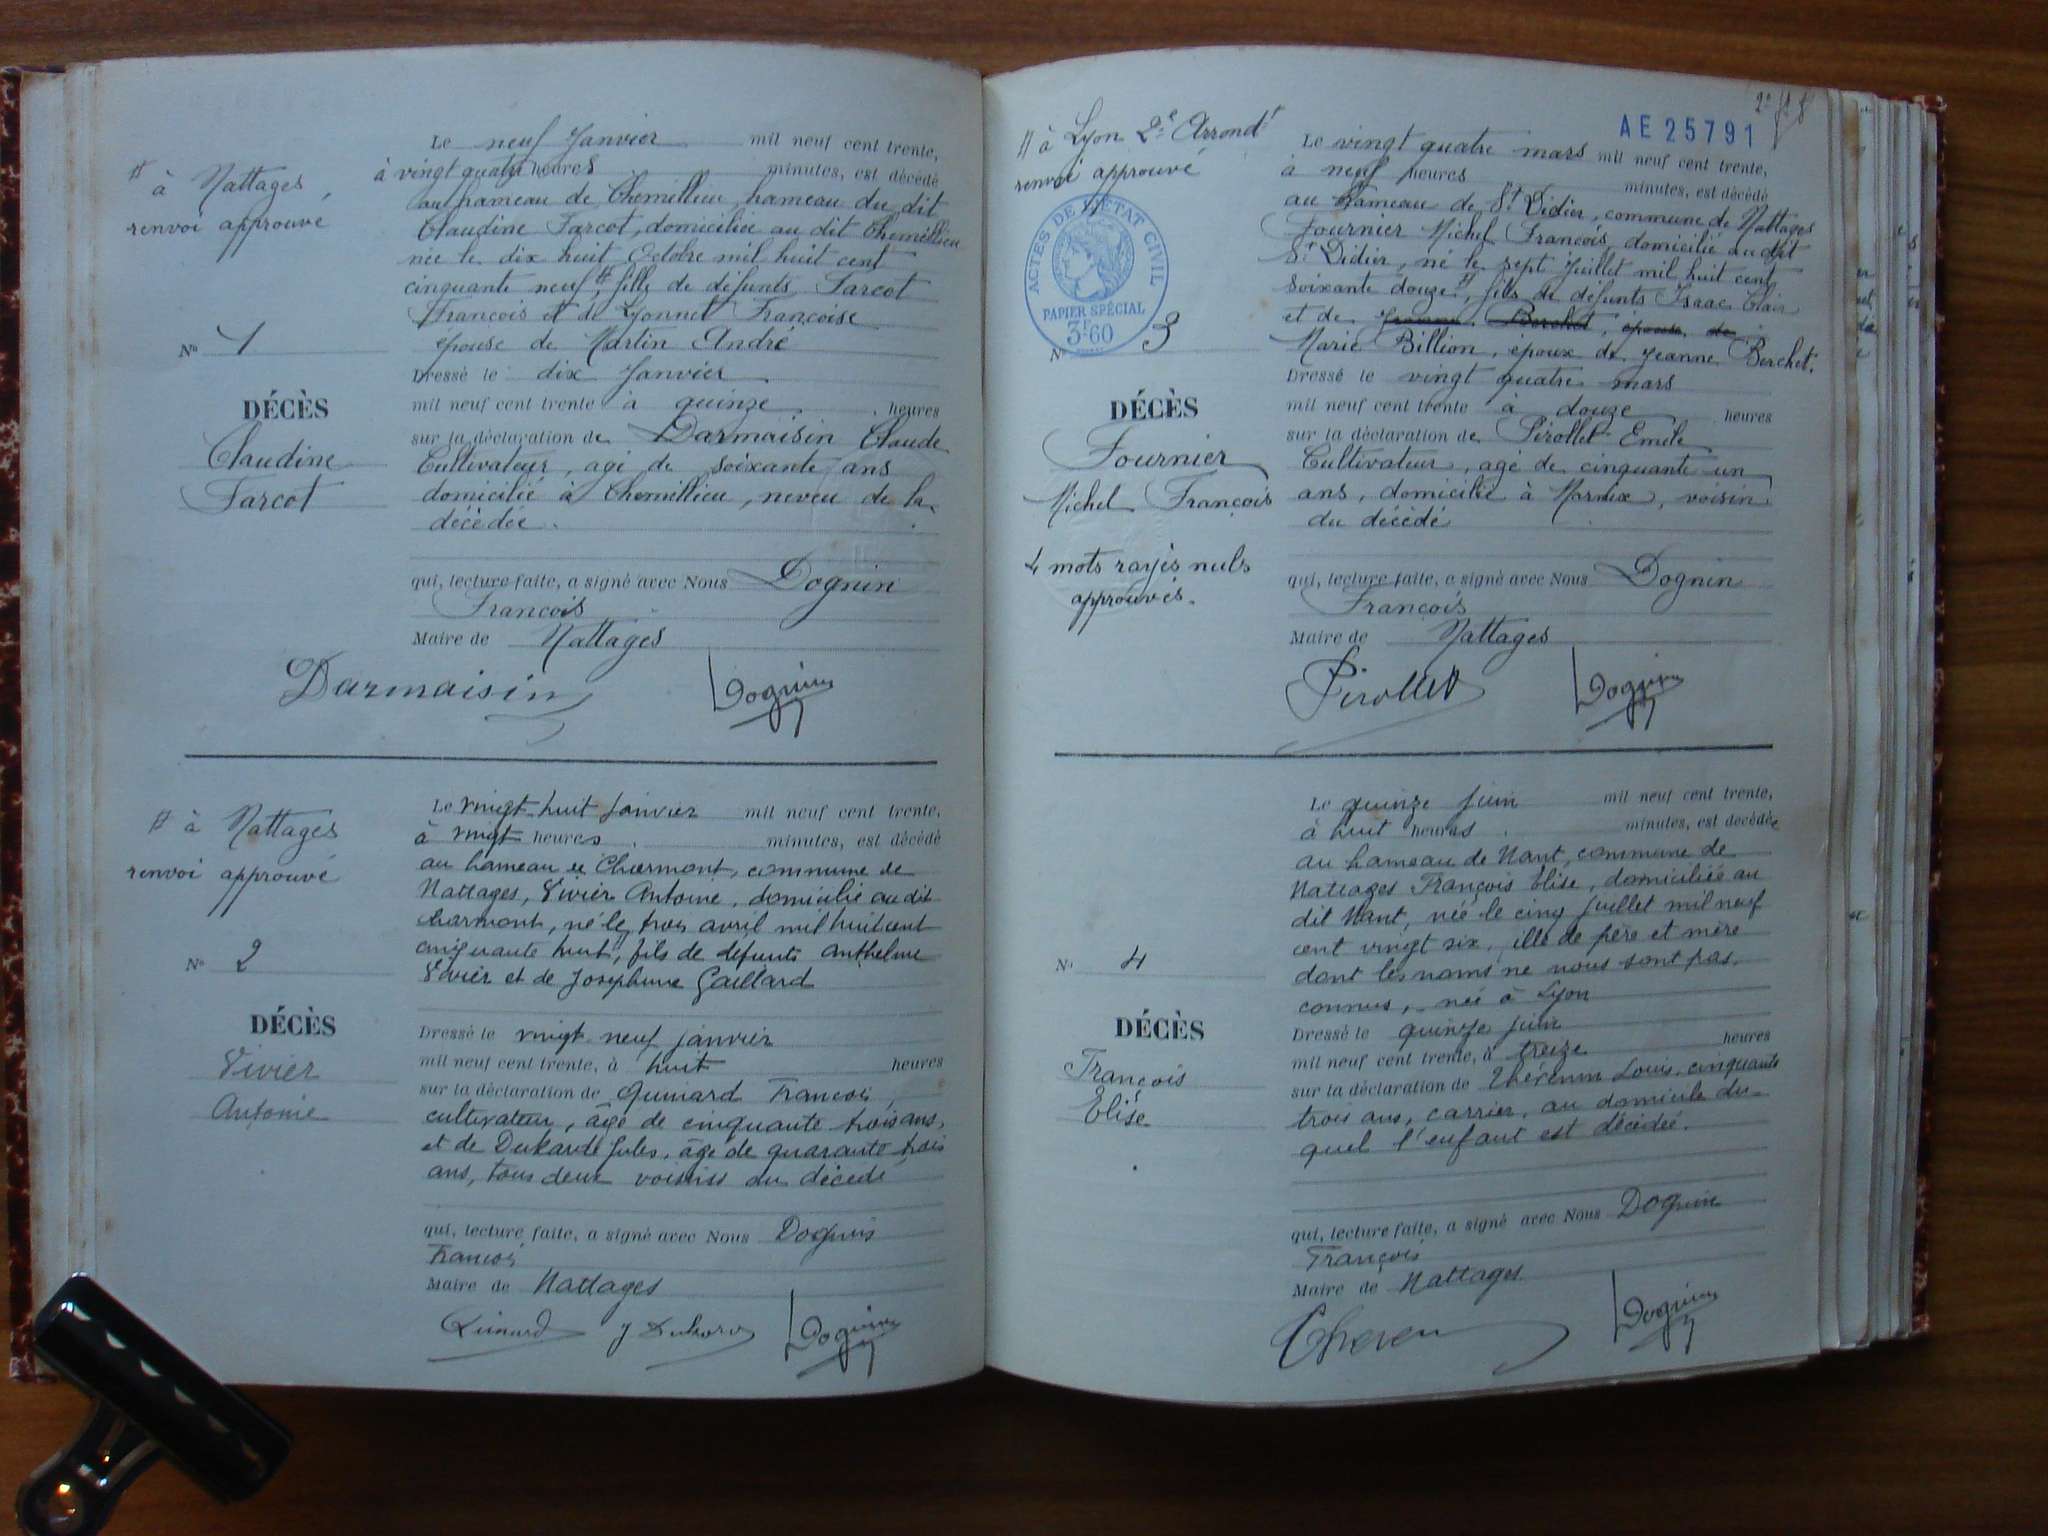 # à Nattages
renvoi approuvé
N° 1
DÉCÈS
Claudine
Farcot
Le neuf Janvier mil neuf cent trente,
à vingt quatre heures minutes, est décédé
au hameau de Chemillieu, hameau du dit
Claudine Farcot, domiciliée au dit Chemillieu
née le dix huit Octobre mil huit cent
cinquante neuf #, fille de défunts Farcot
François et de Lyonnet Françoise
épouse de Martin André
Dressé le dix Janvier
mil neuf cent trente à quinze heures
sur la déclaration de Darmaisin Claude
Cultivateur, agé de soixante ans
domicilié à Chemillieu, neveu de la
décédée.
qui, lecture faite, a signé avec Nous Dognin
François
Maire de Nattages
Darmaisin Dognin
# à Nattages
renvoi approuvé
N° 2
DÉCÈS
Vivier
Antoine
Le vingt huit janvier mil neuf cent trente,
à vingt heures minutes, est décédé
au hameau de Charmont, commune de
Nattages, Vivier Antoine, domicilié au dit
Charmont, né le trois avril mil huit cent
cinquante huit #, fils de défunts Anthelme
Vivier et de Joséphine Gaillard
Dressé le vingt neuf janvier
mil neuf cent trente, à huit heures
sur la déclaration de Guinard François,
cultivateur, âgé de cinquante trois ans,
et de Jules, âgé de quarante trois
ans, tous deux voisins du décédé
qui, lecture faite, a signé avec Nous Dognin
François
Maire de Nattages
Guinard J Dognin
2e
AE 25791
# à Lyon 2e Arrondt
renvoi approuvé
ACTES DE L'ÉTAT CIVIL
PAPIER SPÉCIAL
3F60
N° 3
DÉCÈS
Fournier
Michel François
4 mots rayés nuls
approuvés.
Le vingt quatre mars mil neuf cent trente,
à neuf heures minutes, est décédé
au hameau de St Didier, commune de Nattages
Fournier Michel François, domicilié au dit
St Didier, né le sept Juillet mil huit cent
soixante douze #, fils de défunts Isaac Clair
et de Jeanne Berchet, épouse de
Marie Billion, époux de Jeanne Berchet.
Dressé le vingt quatre mars
mil neuf cent trente à douze heures
sur la déclaration de Pirollet Emile
Cultivateur, agé de cinquante un
ans, domicilié à Marnix, voisin
du décédé
qui, lecture faite, a signé avec Nous Dognin
François
Maire de Nattages
Pirollet Dognin
N° 4
DÉCÈS
François
Elise
Le quinze juin mil neuf cent trente,
à huit heures minutes, est décédée
au hameau de Nant, commune de
Nattages François Elise, domiciliée au
dit Nant, née le cinq juillet mil neuf
cent vingt six, fille de père et mère
dont les noms ne nous sont pas
connus, née à Lyon
Dressé le quinze juin
mil neuf cent trente, à treize heures
sur la déclaration de Louis, cinquante
trois ans, carrier, au domicile du-
quel l'enfant est décédée.
qui, lecture faite, a signé avec Nous Dognin
François
Maire de Nattages
Dognin